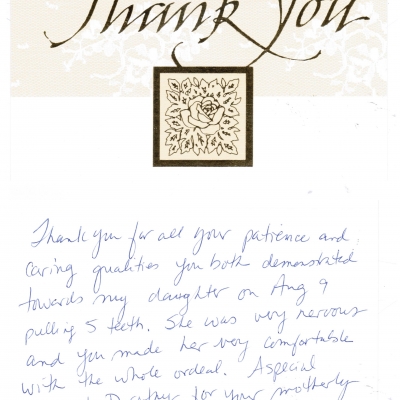 Thank You
Thank you for all your patience and
caring qualities you both demonstrated
towards my daughter on Aug 9
pulling 5 teeth. She was very nervous
and you made her very comfortable
with the whole ordeal. A special
for your motherly